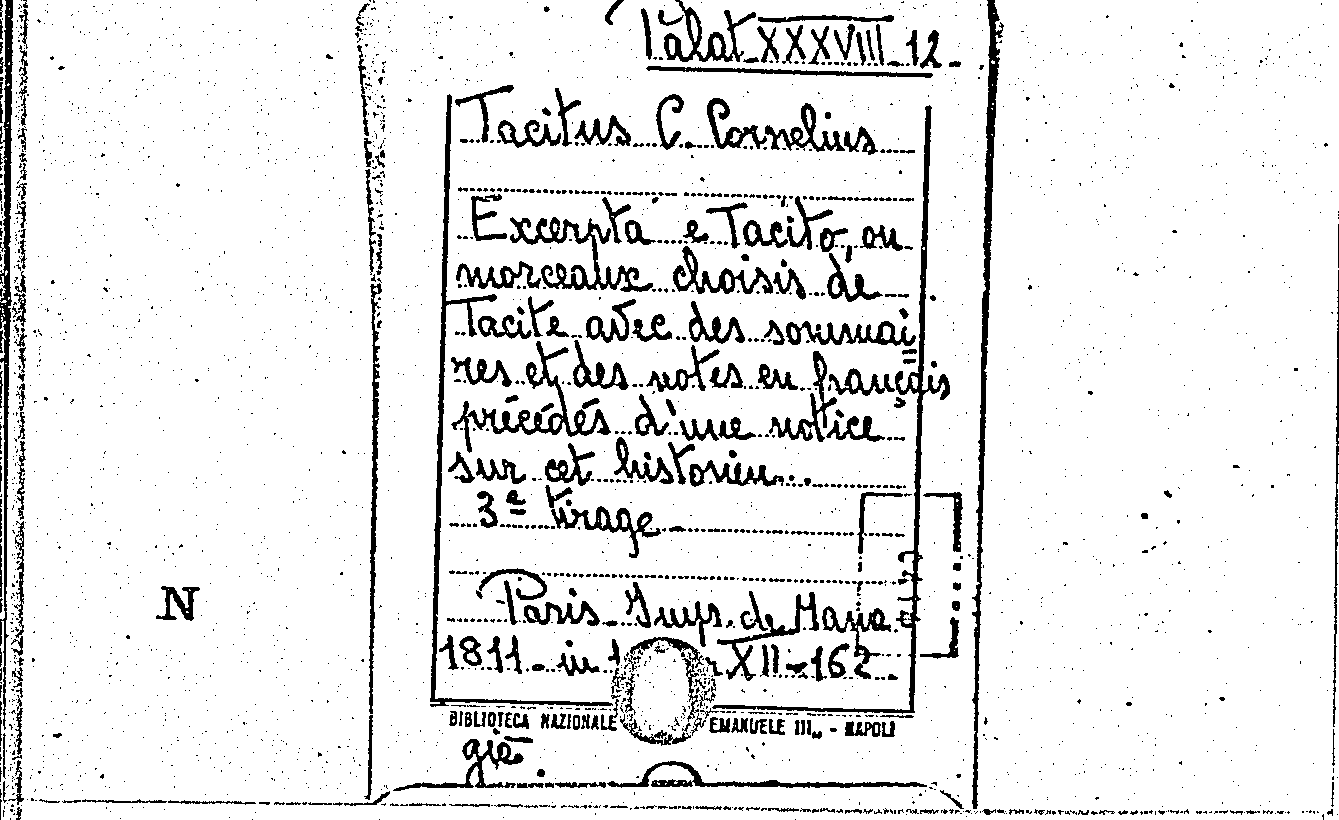 Palat. XXXVIII 12.
Tacitus C. Cornelius
Excerpta e Tacito, ou
morceaux choisis de
Tacite avec des sommai
res et des notes en français
précédés d'une notice
sur cet historien...
3e tirage
Paris Imp. de Mame
1811 - in XII-162
BIBLIOTECA NAZIONALE EMANUELE III„ - NAPOLI
N